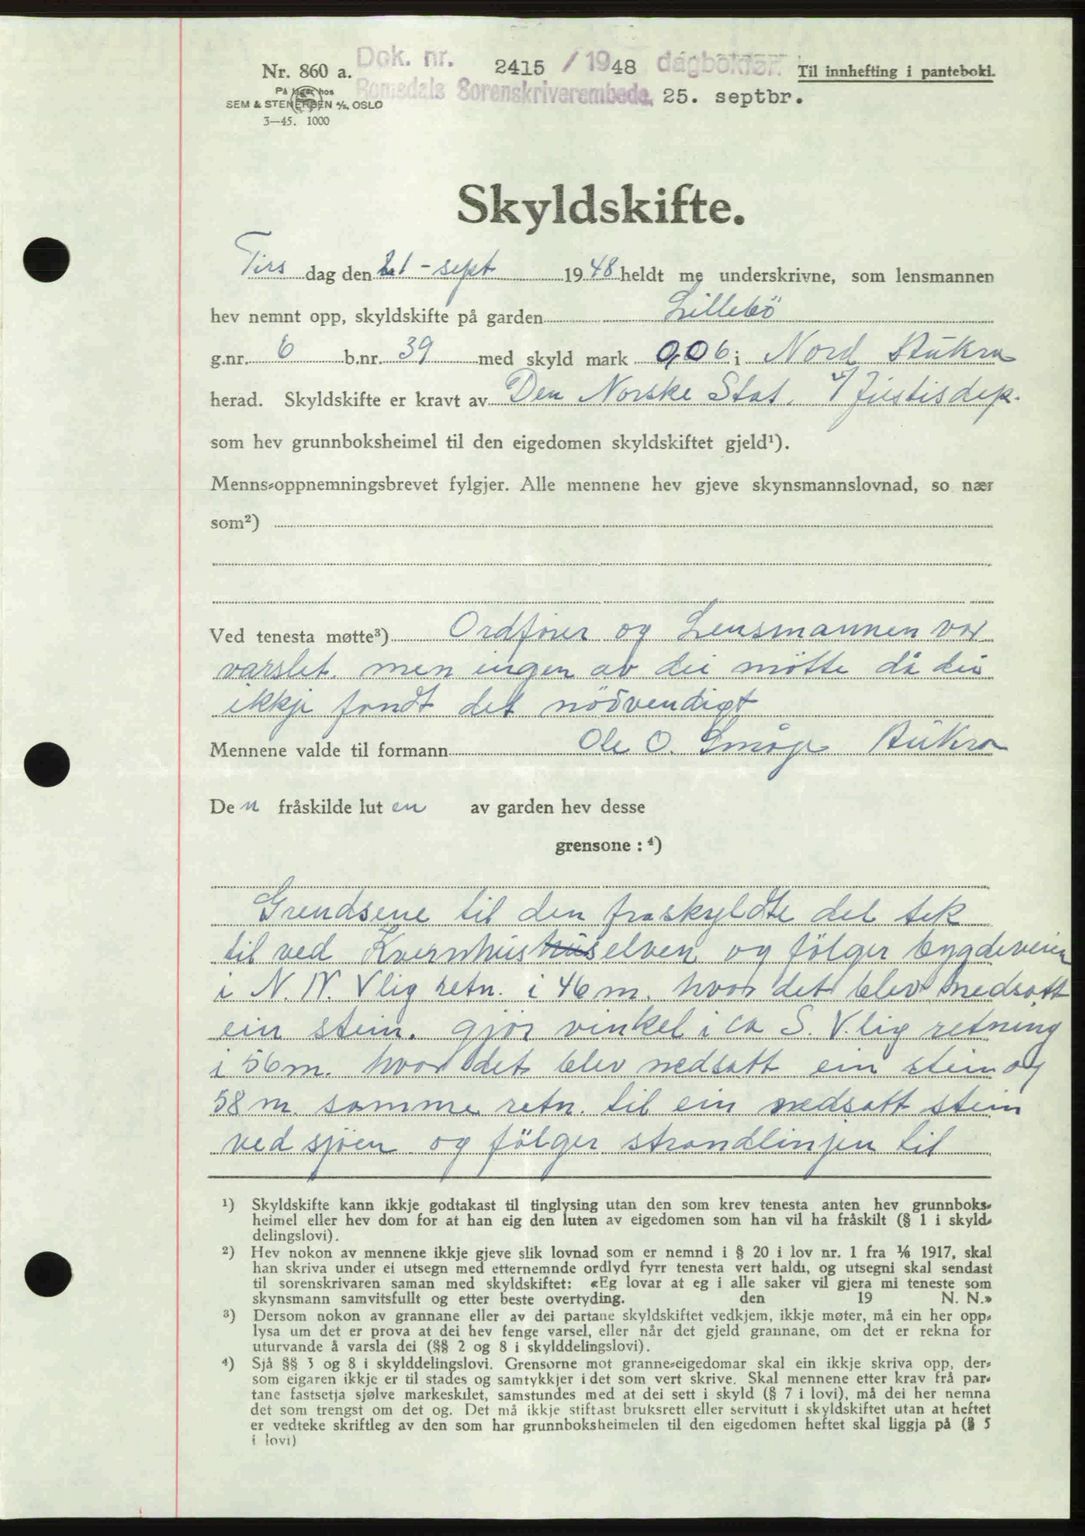 Dok. nr. 2415 / 1948 dagbokfør.
Nr. 860 a.
Til innhefting i panteboki.
Romsdals Sorenskriverembede, 25. septbr.
På lager hos
SEM & STENERSEN A/S, OSLO
3—45. 1000
Skyldskifte.
Tirs dag den 21-sept 1948 heldt me underskrivne, som lensmannen
hev nemnt opp, skyldskifte på garden Lillebö
g.nr. 6 b.nr. 39 med skyld mark 0,06 i Nord Aukra
herad. Skyldskifte er kravt av Den Norske Stat. v/ Justisdep.
som hev grunnboksheimel til den eigedomen skyldskiftet gjeld¹).
Menns-oppnemningsbrevet fylgjer. Alle mennene hev gjeve skynsmannslovnad, so nær
som²)
Ved tenesta møtte³) Ordförer og Lensmannen var
varslet. men ingen av dei mötte då dei
ikkje fandt det nödvendigt
Mennene valde til formann Ole O. Småge Aukra
Den fråskilde luten av garden hev desse
grensone : ⁴)
Grendsene til den fraskyldte del tek
til ved Kvernhuselven og fölger bygdeveien
i N. N. Vlig retn. i 46 m. hvor det blev nedsatt
ein stein. gjör vinkel i ca S. V.lig retning
i 56 m. hvor det blev nedsatt ein stein og
58 m. samme retn. til ein nedsatt stein
ved sjöen og fölger strandlinjen til
¹) Skyldskifte kann ikkje godtakast til tinglysing utan den som krev tenesta anten hev grunnboks-
heimel eller hev dom for at han eig den luten av eigedomen som han vil ha fråskilt (§ 1 i skyld-
delingslovi).
²) Hev nokon av mennene ikkje gjeve slik lovnad som er nemnd i § 20 i lov nr. 1 fra 1/6 1917, skal
han skriva under ei utsegn med etternemnde ordlyd fyrr tenesta vert haldi, og utsegni skal sendast
til sorenskrivaren saman med skyldskiftet: «Eg lovar at eg i alle saker vil gjera mi teneste som
skynsmann samvitsfullt og etter beste overtyding. den 19 N. N.»
³) Dersom nokon av grannane eller av dei partane skyldskiftet vedkjem, ikkje møter, må ein her opp-
lysa um det er prova at dei hev fenge varsel, eller når det gjeld grannane, om det er rekna for
uturvande å varsla dei (§§ 2 og 8 i skylddelingslovi).
⁴) Sjå §§ 3 og 8 i skylddelingslovi. Grensorne mot granne-eigedomar skal ein ikkje skriva opp, der-
som eigaren ikkje er til stades og samtykkjer i det som vert skrive. Skal mennene etter krav frå par-
tane fastsetja sjølve markeskilet, samstundes med at dei sett i skyld (§ 7 i lovi), må dei her nemna
det som trengst om det og. Det må ikkje stiftast bruksrett eller servitutt i skyldskiftet utan at heftet
er vedteke skriftleg av den som har grunnboksheimelen til den eigedomen heftet skal liggja på (§ 5
i lovi)